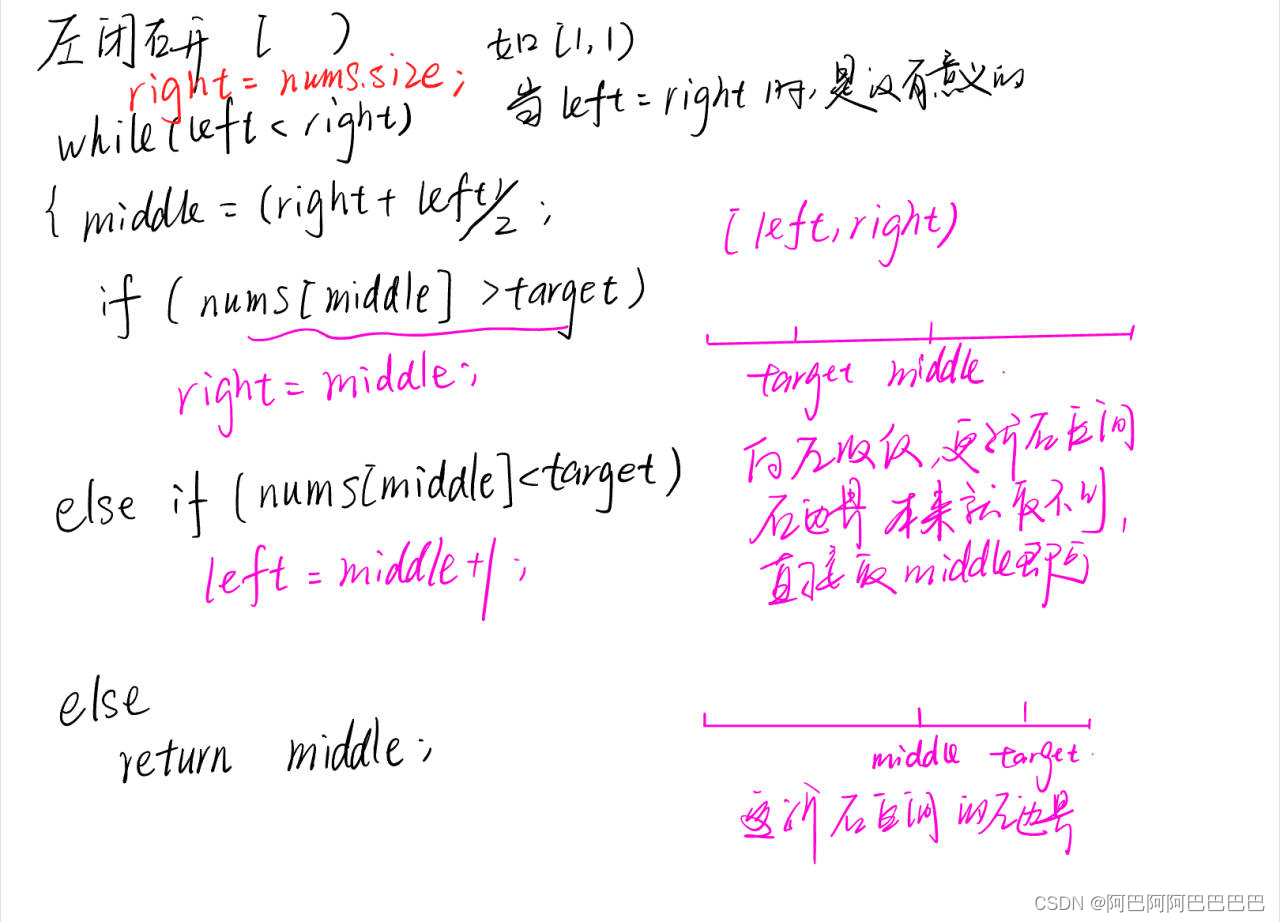 左闭右开 [ )
如 [1,1)
right = nums.size;
当 left = right 时, 是没有意义的
while (left < right)
{ middle = (right + left)/2 ;
[left, right)
if ( nums[middle] > target )
right = middle;
target middle.
向左收仅,更新右区间
else if (nums[middle] < target )
右边界 本来就取不到,
left = middle+1 ;
直接取 middle 即可
else
return middle;
middle target.
更新右区间的左边界
CSDN @阿巴阿阿巴巴巴巴